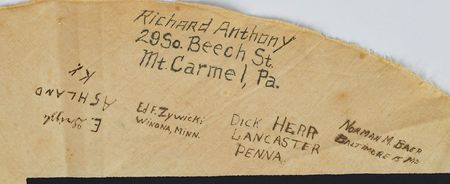 Richard Anthony
29 So. Beech St.
Mt. Carmel, Pa.
E.
ASHLAND
KY.
Ed F. Zywicki
WINONA, MINN.
DICK HERR
LANCASTER
PENNA.
NORMAN M. BAER
BALTIMORE 15 MD